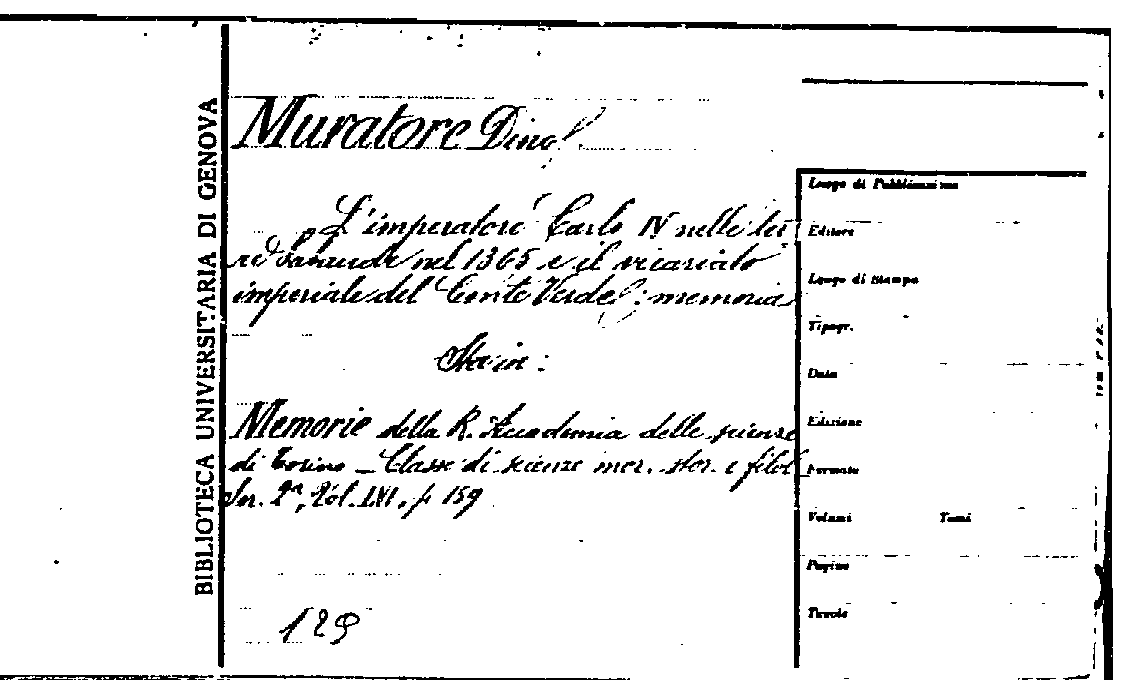 BIBLIOTECA UNIVERSITARIA DI GENOVA
Muratore Dino
L'imperatore Carlo IV nelle ter
re Sabaude nel 1365 e il vicariato
imperiale del Conte Verde; memoria
Sta in:
Memorie della R. Accademia delle scienze
di Torino - Classe di scienze mor. stor. e filol
Ser. 2ª, Vol. LVI, p. 159
129
Luogo di Pubblicazione
Editore
Luogo di Stampa
Tipogr.
Data
Edizione
Formato
Volumi Tomi
Pagine
Tavole